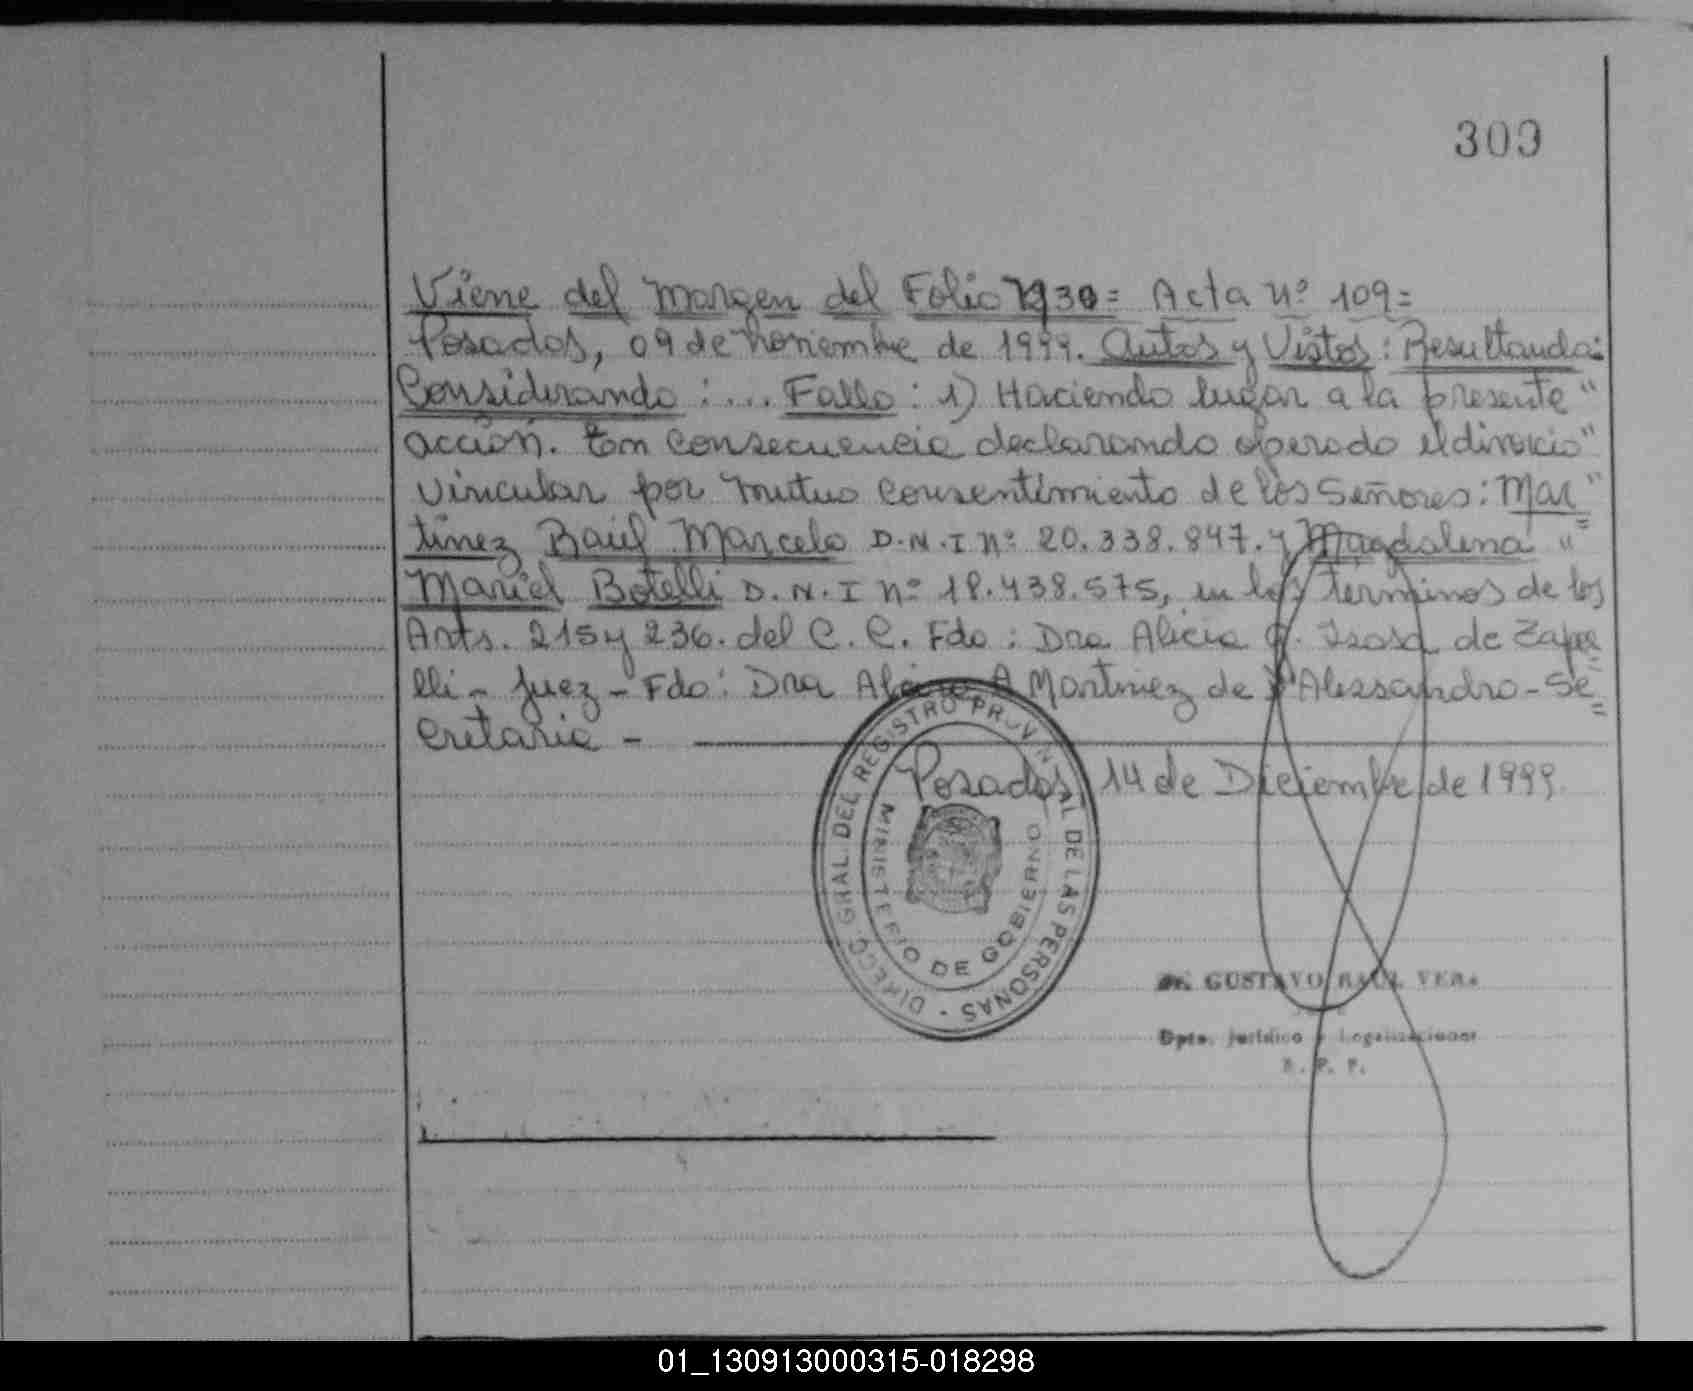 309
Viene del Margen del Folio 1930= Acta nº 109=
Posadas, 09 de noviembre de 1999. Autos y Vistos: Resultando:
Considerando: ... Fallo: 1) Haciendo lugar a la presente "
acción. En consecuencia declarando operado el divorcio"
vincular por mutuo consentimiento de los Señores: Mar"
=
tínez Raúl Marcelo D.N.I nº 20.338.847. y Magdalena "
Mariel Botelli D.N.I nº 18.438.575, en los términos de los
Arts. 215 y 236. del C.C. Fdo: Dra Alicia de Zape
=
lli - Juez - Fdo: Dra Alicia A Martinez de D'Alessandro - Se
=
cretaria -
Posadas, 14 de Diciembre de 1999.
DIRECC. GRAL. DEL REGISTRO PROVINCIAL DE LAS PERSONAS -
MINISTERIO DE GOBIERNO
Dr. GUSTAVO RAUL VERA
Dpto. Jurídico y Legalizaciones
R. P. P.
01_130913000315-018298